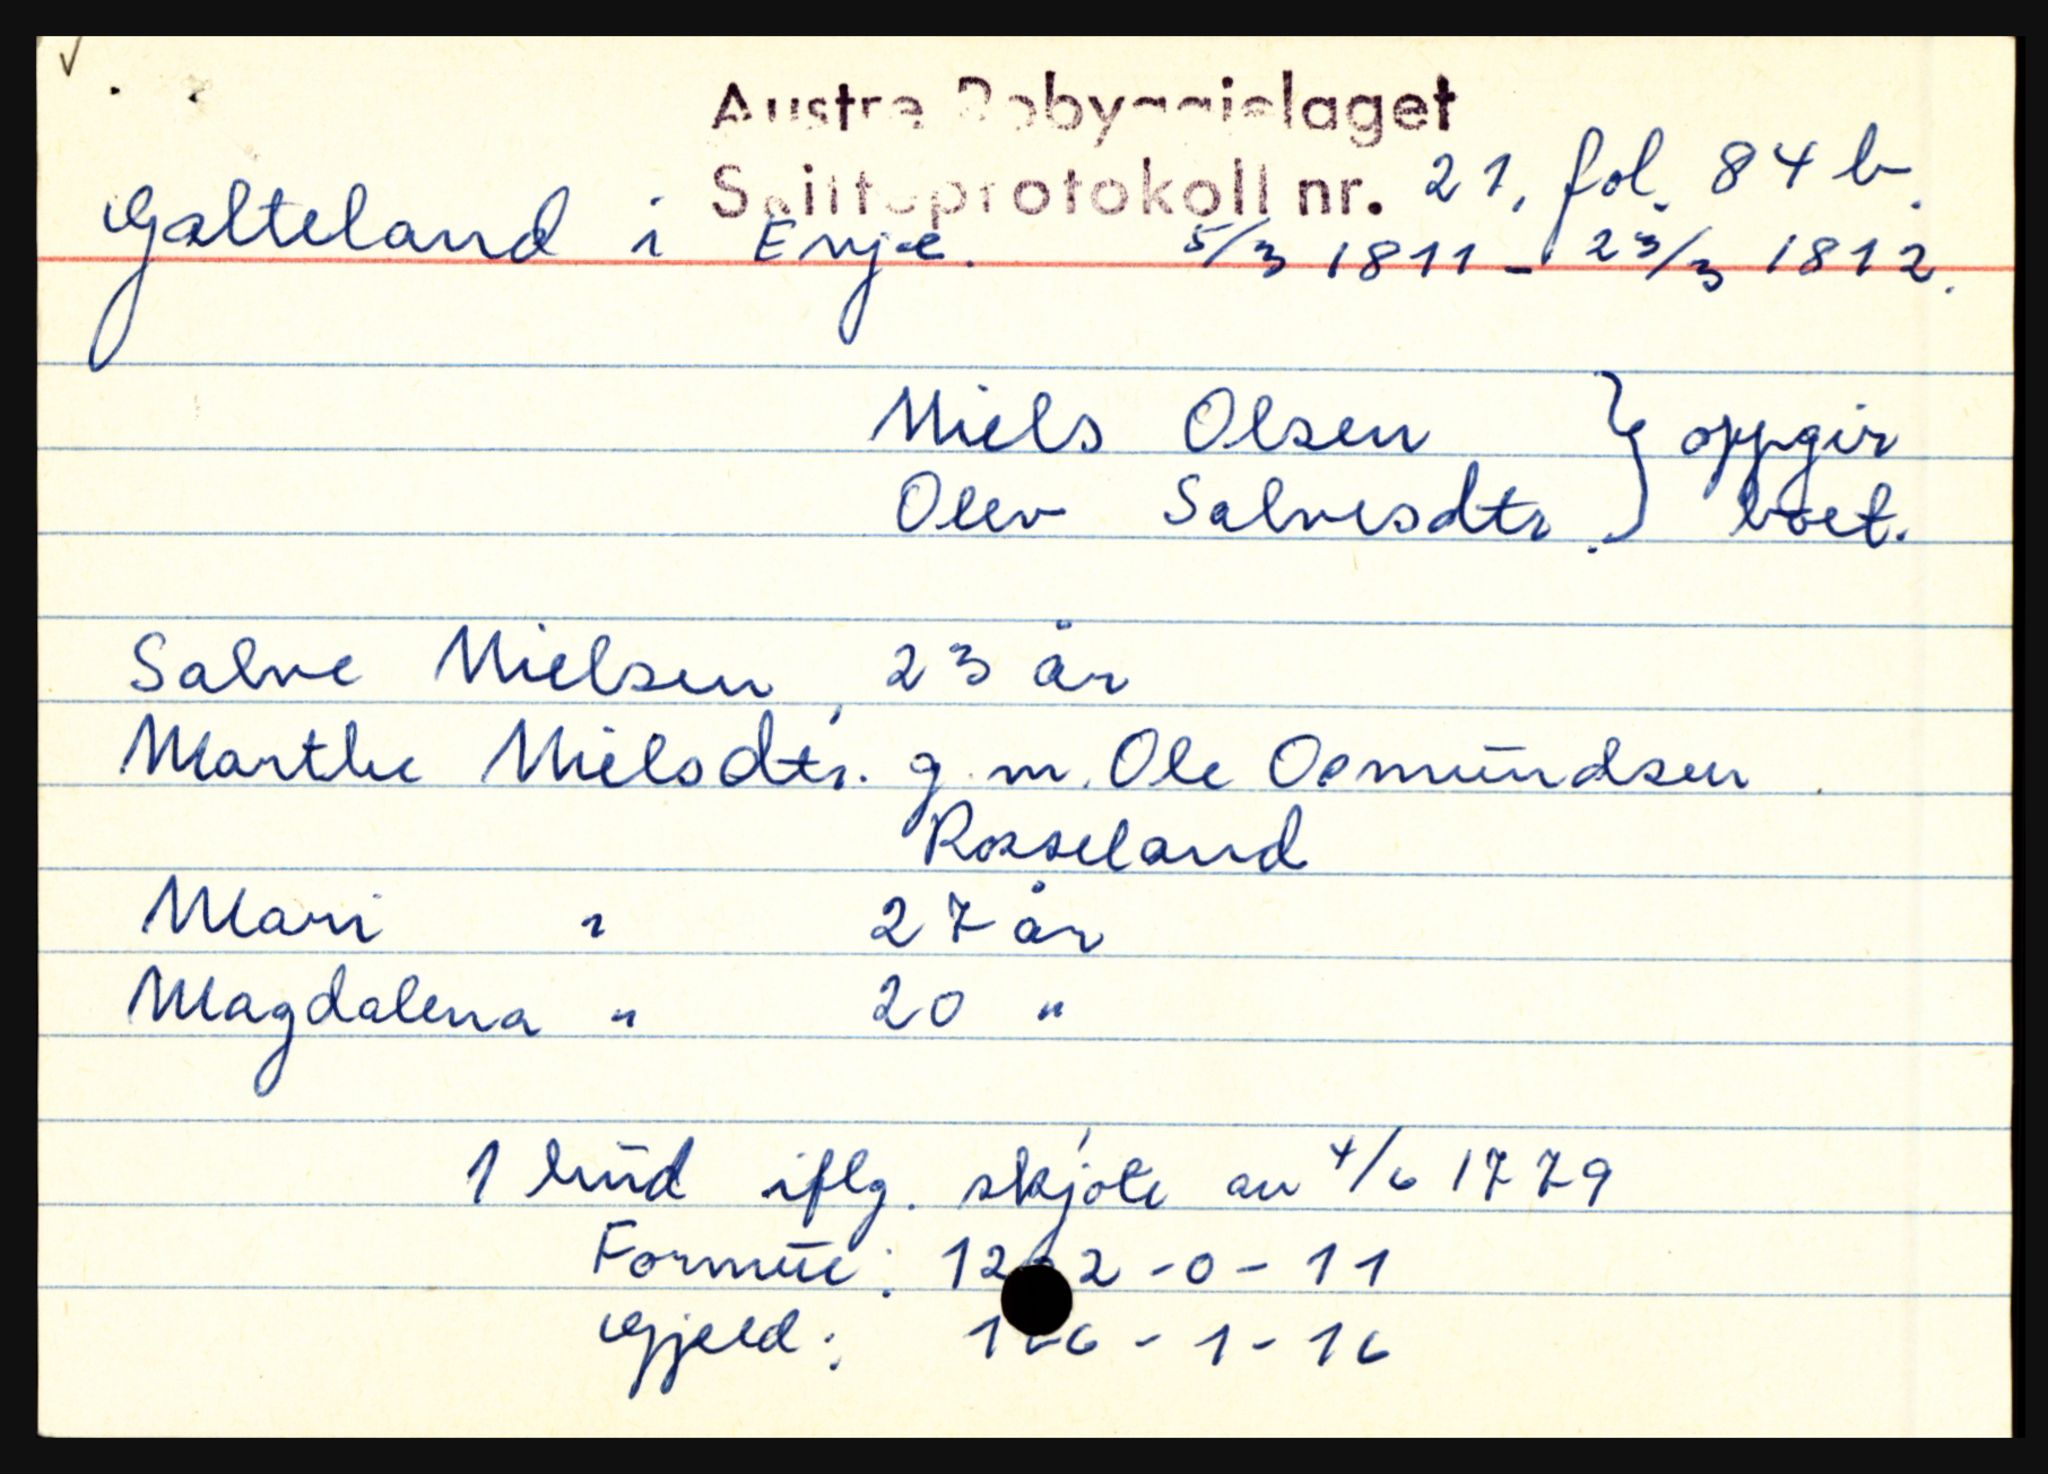 Austre Robyggjelaget
Skifteprotokoll nr. 21, fol. 84 b.
Galteland i Evje. 5/3 1811 - 23/3 1812.
Niels Olsen } oppgir
Olev Salvesdtr. boet.
Salve Nielsen, 23 år
Marthe Nielsdtr. g.m. Ole Osmundsen
Rosseland
Mari " 27 år
Magdalena " 20 "
1 hud iflg. skjøte av 4/6 1779
Formue: -0-11
Gjeld: -1-16